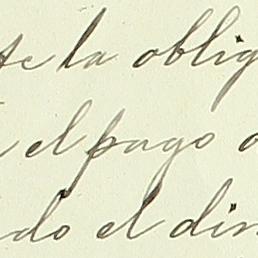 te la oblig
el pago
do el din